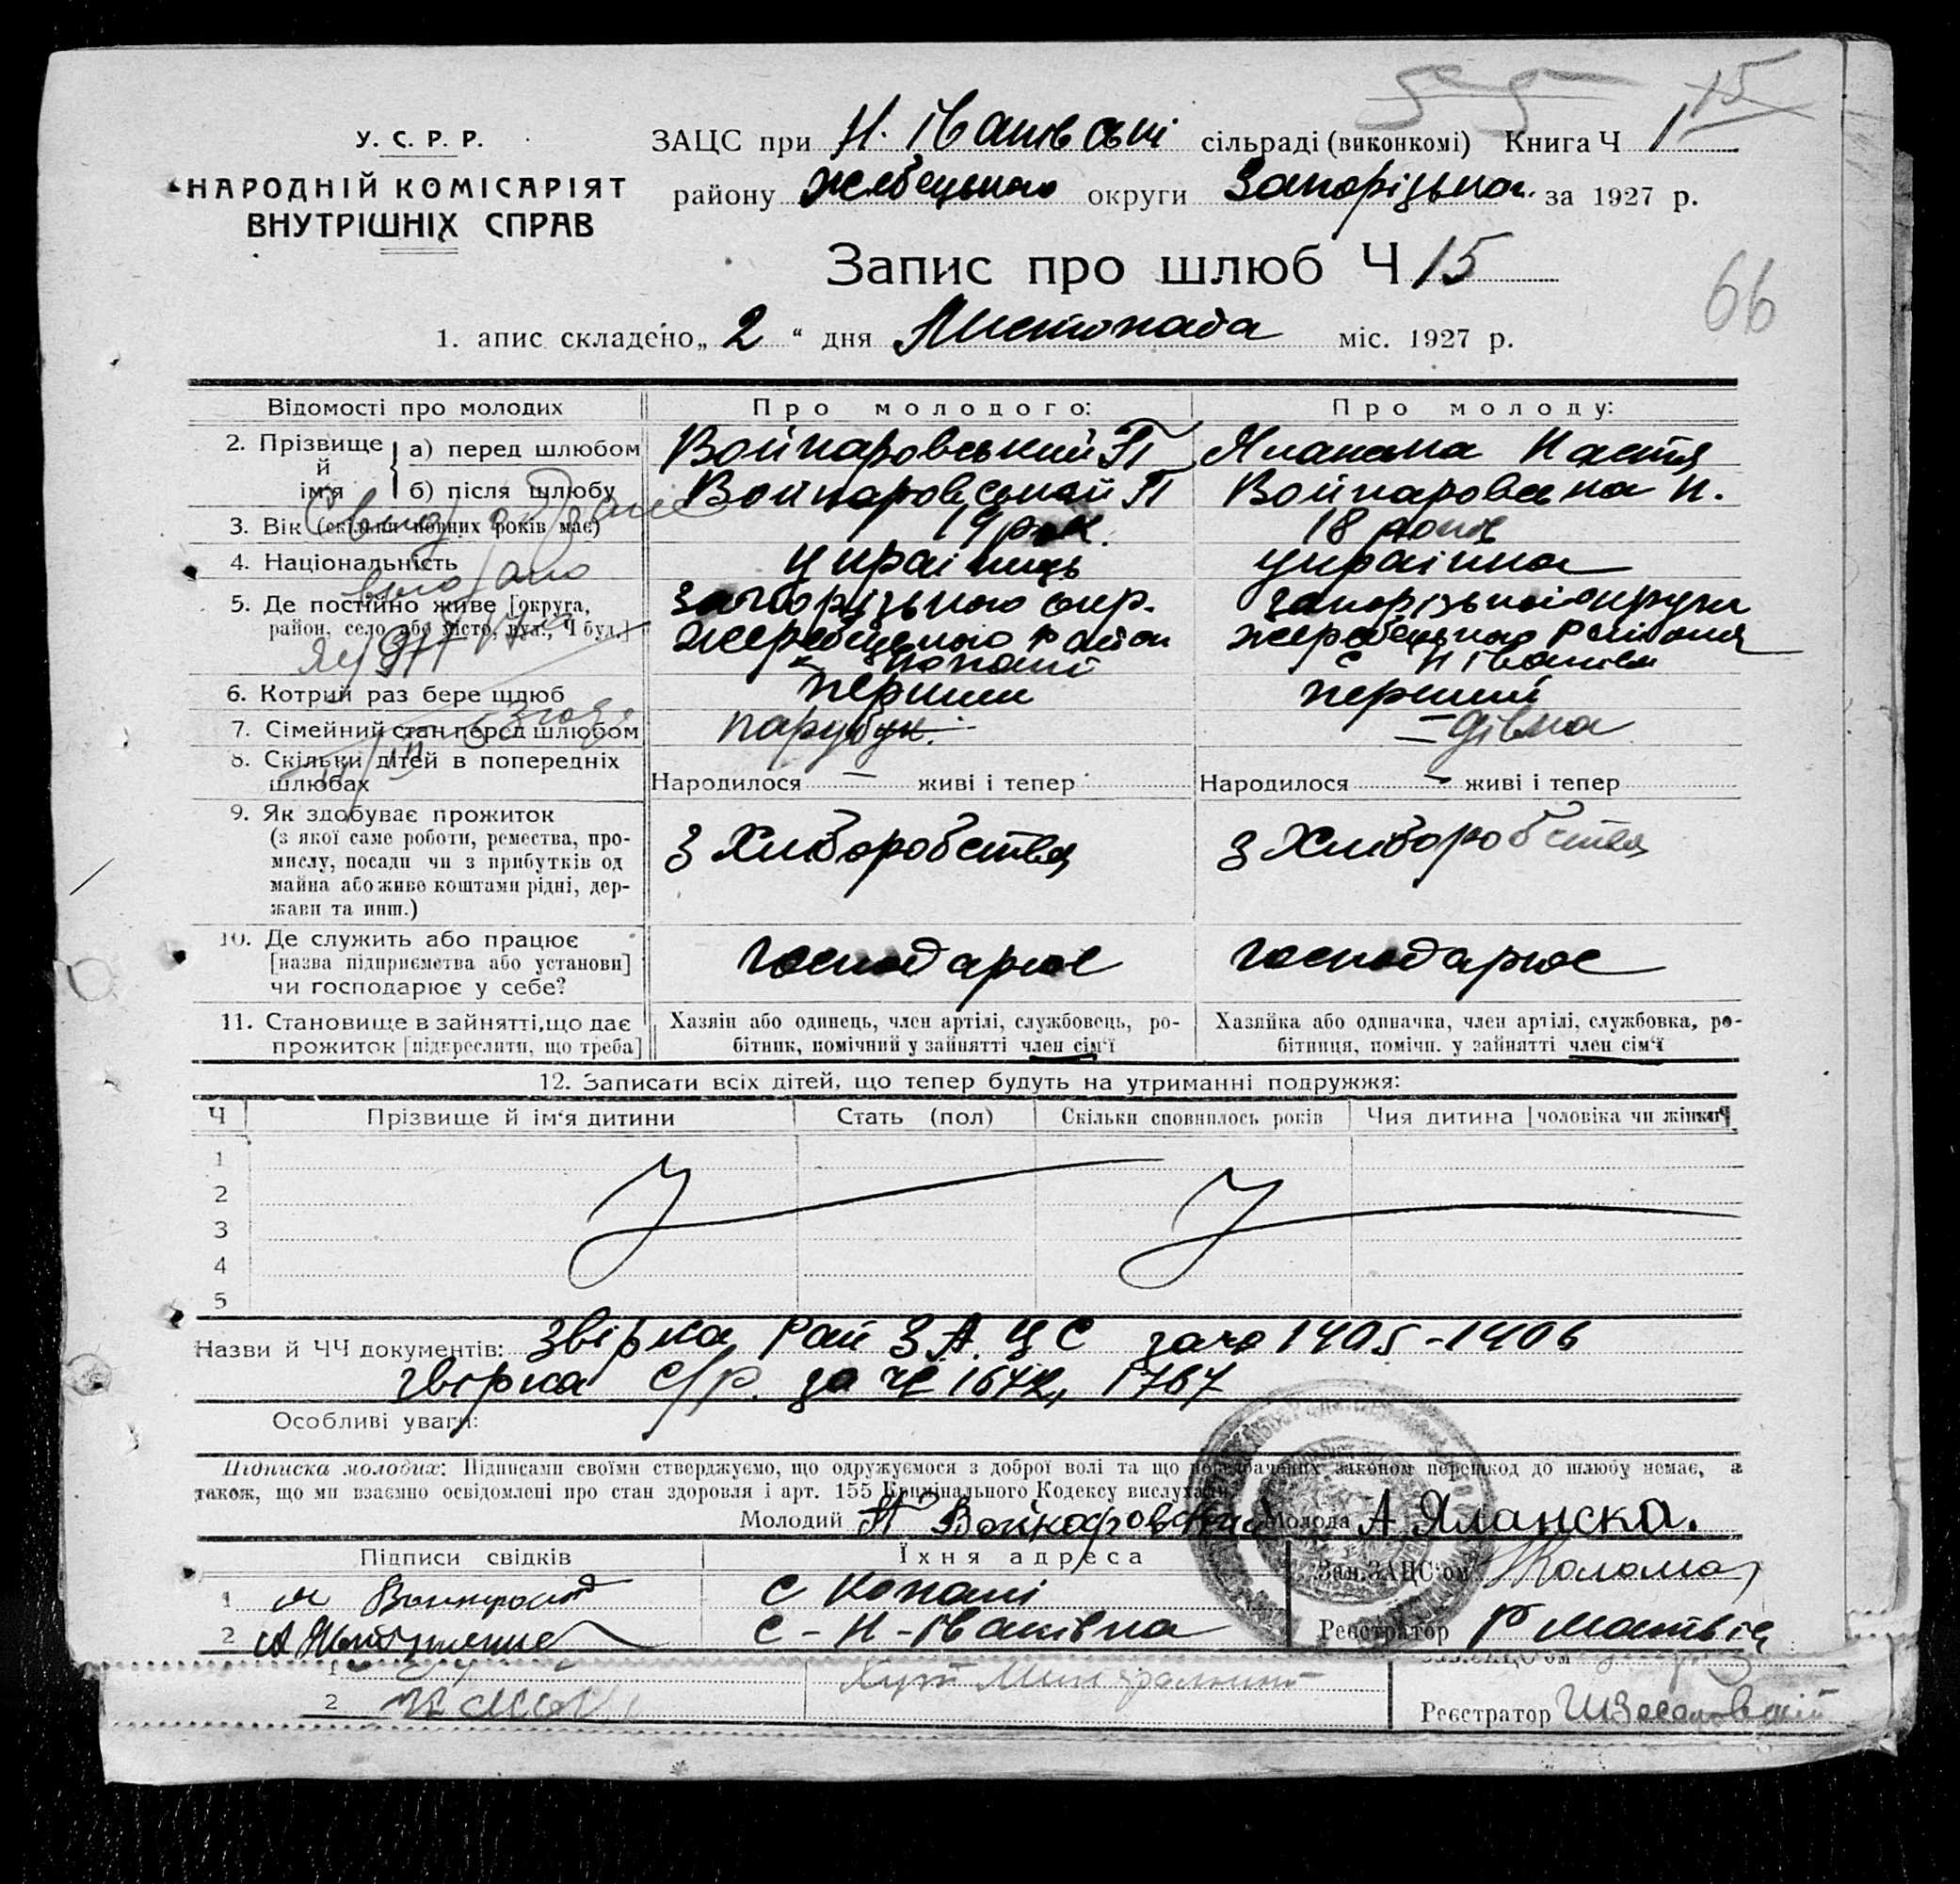 15
У. С. Р. Р.
НАРОДНІЙ КОМІСАРІЯТ
ВНУТРІШНІХ СПРАВ
ЗАЦС при Н. Іванівські сільраді (виконкомі) Книга Ч 1
району Жебецького округи Запорізько за 1927 р.
Запис про шлюб Ч 15
66
1. апис складено „ 2 “ дня Листопада міс. 1927 р.
Відомості про молодих
Про молодого:
Про молоду:
2. Прізвище й ім'я
а) перед шлюбом
Войнаровський П
Яланська Настя
б) після шлюбу
Войнаровський П
Войнаровська Н.
3. Вік (скільки повних років має)
19 рок.
18 років
4. Національність
українець
українка
5. Де постійно живе [округа, район, село або місто, вул., Ч буд.]
Запорізького окр.
Жеребецького район
Копані
Запорізької округи
Жеребецького Района
с Н Іванівка
6. Котрий раз бере шлюб
перший
перший
7. Сімейний стан перед шлюбом
парубук.
– дівка
8. Скільки дітей в попередніх шлюбах
Народилося — живі і тепер
Народилося — живі і тепер
9. Як здобуває прожиток
(з якої саме роботи, ремества, про-
мислу, посади чи з прибутків од
майна або живе коштами рідні, дер-
жави та инш.)
З Хліборобства
З Хліборобства
10. Де служить або працює
[назва підприємства або установи]
чи господарює у себе?
господарює
господарює
11. Становище в зайнятті, що дає
прожиток [підкреслити, що треба]
Хазяін або одинець, член артілі, службовець, ро-
бітник, помічний у зайнятті член сім'ї
Хазяйка або одиначка, член артілі, службовка, ро-
бітниця, помічн. у зайнятті член сім'ї
12. Записати всіх дітей, що тепер будуть на утриманні подружжя:
Ч
Прізвище й ім'я дитини
Стать (пол)
Скільки сповнилось років
Чия дитина [чоловіка чи жінки]
1
2
3
4
5
Назви й ЧЧ документів: Звірка Рай З.А.ЦС за ч 1405-1406
звірка с/р. за ч 1642, 1767
Особливі уваги:
Підписка молодих: Підписами своїми стверджуємо, що одружуємося з доброї волі та що передбачених законом перешкод до шлюбу немає, а
також, що ми взаємно освідомлені про стан здоровля і арт. 155 Кримінального Кодексу вислухали.
Молодий П Войнаровский
Молода А Яланска.
Підписи свідків
Їхня адреса
Зав. ЗАЦС'ом
1
с Копані
2
с - Н - Іванівка
Реєстратор Р Матвія
1
2
Хут
Реєстратор